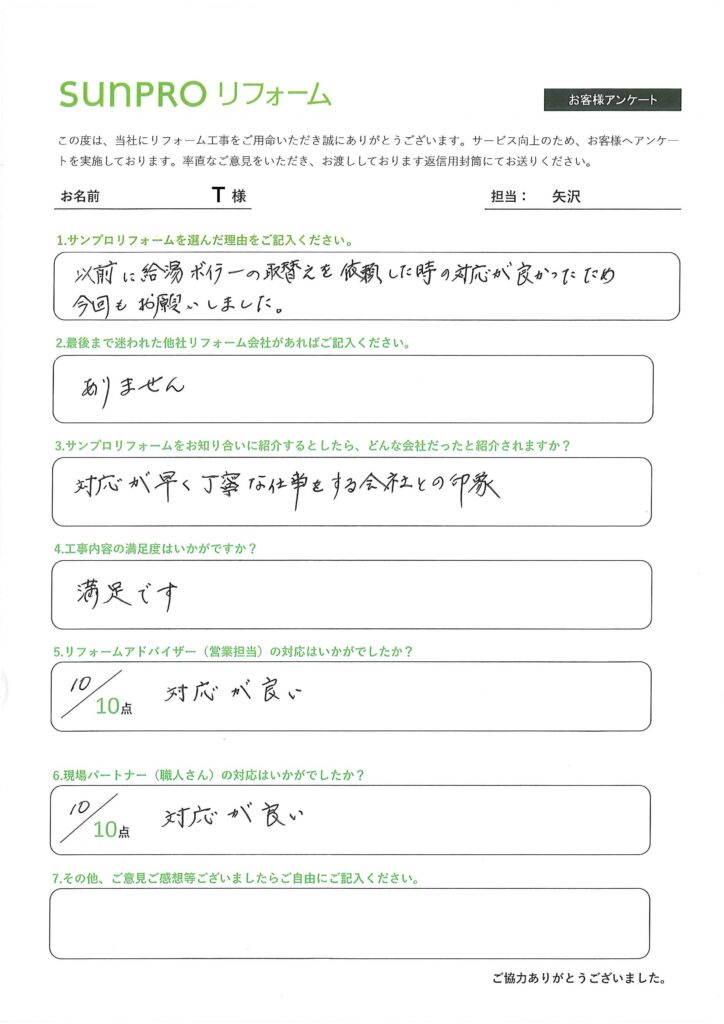 sunPRO リフォーム
お客様アンケート
この度は、当社にリフォーム工事をご用命いただき誠にありがとうございます。サービス向上のため、お客様へアンケー
トを実施しております。率直なご意見をいただき、お渡ししております返信用封筒にてお送りください。
お名前 T 様 担当： 矢沢
1.サンプロリフォームを選んだ理由をご記入ください。
以前に給湯ボイラーの取替えを依頼した時の対応が良かったため
今回もお願いしました。
2.最後まで迷われた他社リフォーム会社があればご記入ください。
ありません
3.サンプロリフォームをお知り合いに紹介するとしたら、どんな会社だったと紹介されますか？
対応が早く丁寧な仕事をする会社との印象
4.工事内容の満足度はいかがですか？
満足です
5.リフォームアドバイザー（営業担当）の対応はいかがでしたか？
10/10点 対応が良い
6.現場パートナー（職人さん）の対応はいかがでしたか？
10/10点 対応が良い
7.その他、ご意見ご感想等ございましたらご自由にご記入ください。
ご協力ありがとうございました。